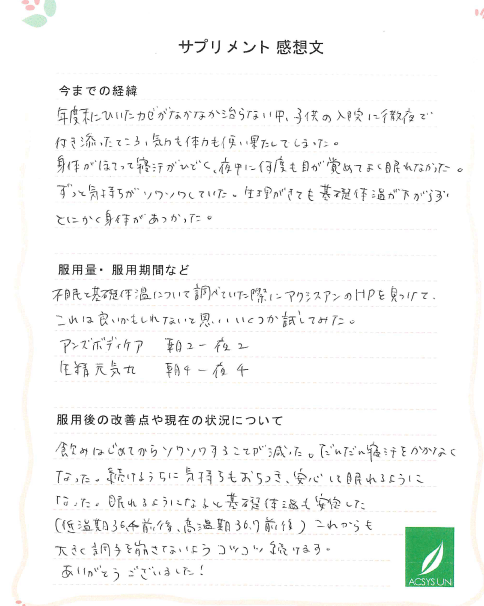 サプリメント 感想文
今までの経緯
年度末にひいたカゼがなかなか治らない中、子供の入院に徹夜で
付き添ったところ、気力も体力も使い果たしてしまった。
身体がほてって寝汗がひどく、夜中に何度も目が覚めてよく眠れなかった。
ずっと気持ちがソワソワしていた。生理がきても基礎体温が下がらず
とにかく身体があつかった。
服用量・服用期間など
不眠と基礎体温について調べていた際にアクシスアンのHPを見つけて、
これは良いかもしれないと思い、いくつか試してみた。
アンズボディケア 朝2－夜2
生精元気丸 朝4－夜4
服用後の改善点や現在の状況について
飲みはじめてからソワソワすることが減った。だんだん寝汗をかかなく
なった。続けるうちに気持ちもおちつき、安心して眠れるように
なった。眠れるようになると基礎体温も安定した
(低温期36.4前後、高温期36.7前後) これからも
大きく調子を崩さないようコツコツ続けます。
ありがとうございました!
ACSYSUN